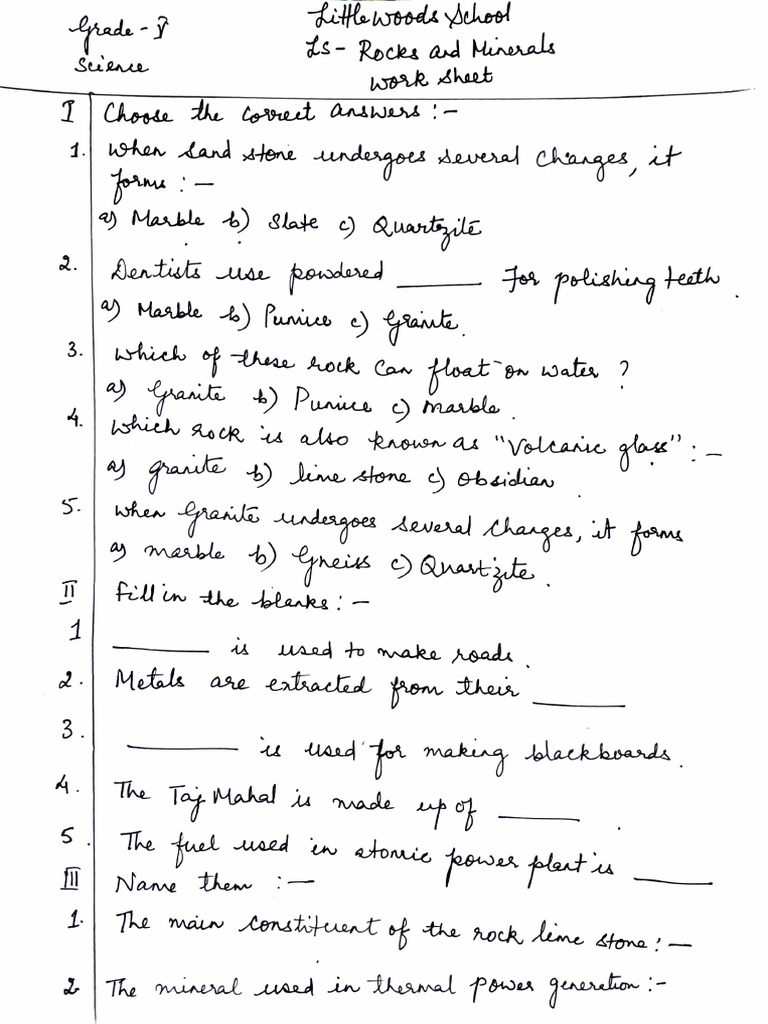 Grade - V
Little Woods School
Science
LS - Rocks and Minerals
Work Sheet
I Choose the correct answers :-
1. When Sand stone undergoes several changes, it
forms :-
a) Marble b) Slate c) Quartzite
2. Dentists use powdered ______ for polishing teeth.
a) Marble b) Pumice c) Granite.
3. Which of these rock can float on water ?
a) Granite b) Pumice c) marble.
4. Which rock is also known as "Volcanic glass" :-
a) granite b) lime stone c) Obsidian
5. When Granite undergoes several changes, it forms
a) marble b) Gneiss c) Quartzite.
II Fill in the blanks :-
1 ______ is used to make roads.
2. Metals are extracted from their ______
3. ______ is used for making blackboards.
4. The Taj Mahal is made up of ______.
5. The fuel used in atomic power plant is ______
III Name them :-
1. The main constituent of the rock lime stone :-
2. The mineral used in thermal power generation :-